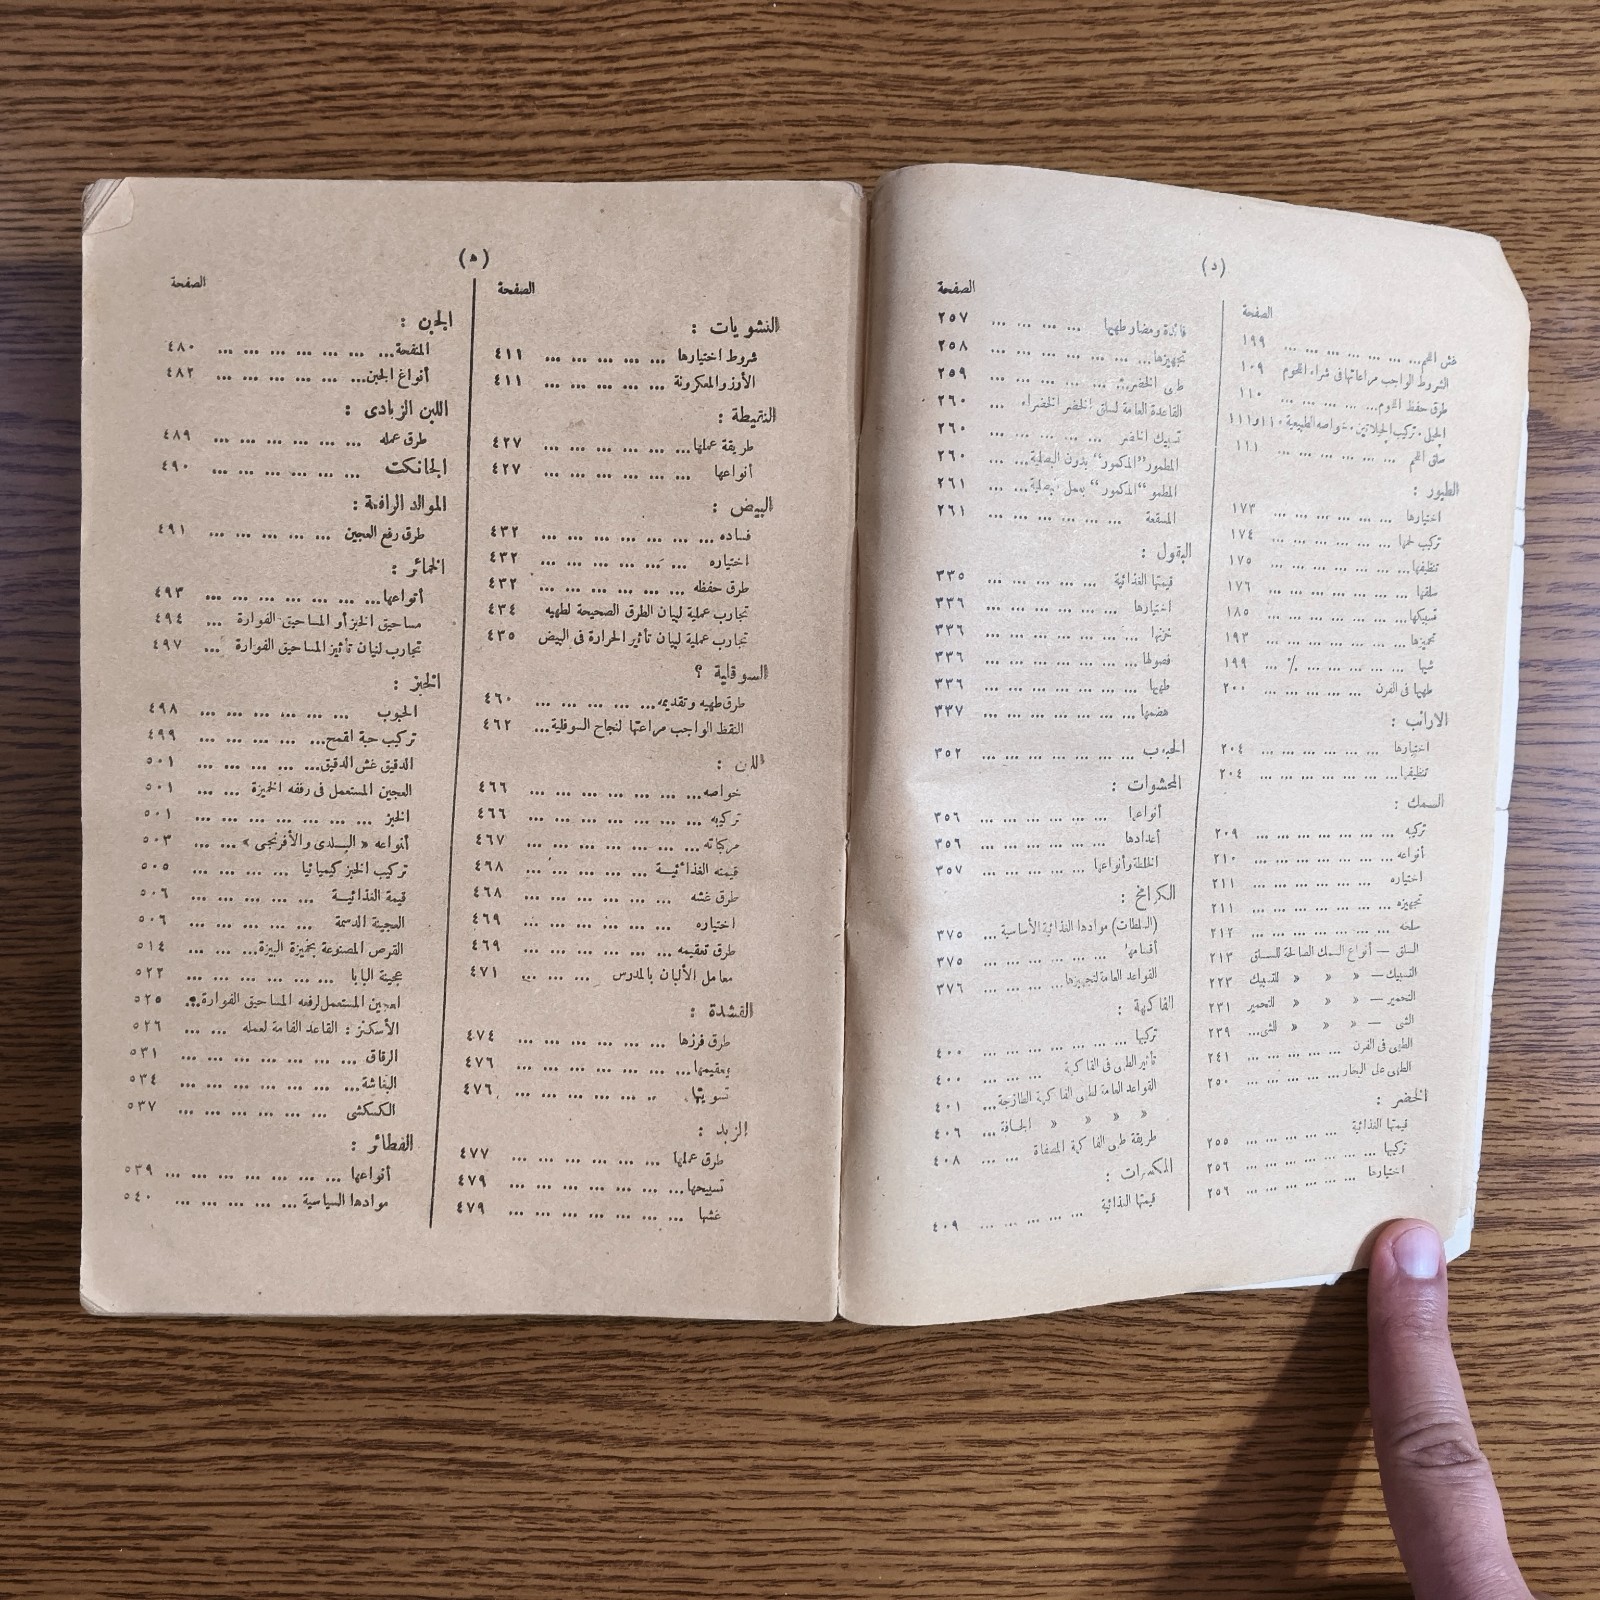 (د)
الصفحة
غش اللحم... ... ... ... ... ... ... ١٩٩
الشروط الواجب مراعاتها فى شراء اللحوم ١٠٩
طرق حفظ اللحوم... ... ... ... ... ١١٠
الجيلى. تركيب الجيلاتين. خواصه الطبيعية ١١٠و١١١
سلق اللحم ... ... ... ... ... ... ١١١
الطيور :
اختيارها ... ... ... ... ... ... ١٧٣
تركيب لحمها ... ... ... ... ... ... ١٧٤
تنظيفها... ... ... ... ... ... ... ١٧٥
سلقها ... ... ... ... ... ... ... ١٧٦
تسبيكها... ... ... ... ... ... ... ١٨٥
تحميرها ... ... ... ... ... ... ... ١٩٣
شيها ... ... ... ... ... ٪ ... ١٩٩
طهيها فى الفرن ... ... ... ... ... ٢٠٠
الارانب :
اختيارها ... ... ... ... ... ... ٢٠٤
تنظيفها... ... ... ... ... ... ... ٢٠٤
السمك :
تركيبه ... ... ... ... ... ... ... ٢٠٩
أنواعه ... ... ... ... ... ... ... ٢١٠
اختياره ... ... ... ... ... ... ٢١١
تجهيزه ... ... ... ... ... ... ... ٢١١
سلخه ... ... ... ... ... ... ... ٢١٢
السلق — أنواع السمك الصالحة للسلق ٢١٣
التسبيك — « « « للتسبيك ٢٢٣
التحمير — « « « للتحمير ٢٣١
الشى — « « « للشى... ٢٣٩
الطهى فى الفرن ... ... ... ... ... ٢٤١
الطهى على البخار... ... ... ... ... ٢٥٠
الخضر :
قيمتها الغذائية ... ... ... ... ... ٢٥٥
تركيبها ... ... ... ... ... ... ... ٢٥٦
اختيارها ... ... ... ... ... ... ٢٥٦
الصفحة
فائدة ومضار طهيها ... ... ... ... ٢٥٧
تجهيزها... ... ... ... ... ... ... ٢٥٨
طهى الخضر... ... ... ... ... ... ٢٥٩
القاعدة العامة لسلق الخضر الخضراء ... ٢٦٠
تسبيك الخضر ... ... ... ... ... ٢٦٠
المطمور "المكمور" بدون البصلية... ... ٢٦٠
المطمو "المكمور" بعمل بصلية... ... ٢٦١
المسقعة ... ... ... ... ... ... ٢٦١
البقول :
قيمتها الغذائية ... ... ... ... ... ٣٣٥
اختيارها ... ... ... ... ... ... ٣٣٦
خزنها ... ... ... ... ... ... ... ٣٣٦
فصولها ... ... ... ... ... ... ... ٣٣٦
طهيها ... ... ... ... ... ... ... ٣٣٦
هضمها ... ... ... ... ... ... ... ٣٣٧
الحبوب ... ... ... ... ... ... ... ٣٥٢
المحشوات :
أنواعها ... ... ... ... ... ... ٣٥٦
أعدادها ... ... ... ... ... ... ٣٥٦
الخلطة وأنواعها ... ... ... ... ... ٣٥٧
الكرامخ :
(السلطات) موادها الغذائية الأساسية ... ٣٧٥
أقسامها ... ... ... ... ... ... ... ٣٧٥
القواعد العامة لتجهيزها... ... ... ... ٣٧٦
الفاكهة :
تركيبها ... ... ... ... ... ... ... ٤٠٠
تأثير الطهى فى الفاكهة ... ... ... ٤٠٠
القواعد العامة لطهى الفاكهة الطازجة... ٤٠١
« « « « الجافة ... ٤٠٦
طريقة طهى الفاكهة المصفاة ... ... ٤٠٨
المكسرات :
قيمتها الغذائية ... ... ... ... ... ٤٠٩
(ه)
الصفحة
النشويات :
شروط اختيارها ... ... ... ... ... ٤١١
الأوز والمعكرونة ... ... ... ... ... ٤١١
النميطة :
طريقة عملها... ... ... ... ... ... ٤٢٧
أنواعها ... ... ... ... ... ... ٤٢٧
البيض :
فساده ... ... ... ... ... ... ... ٤٣٢
اختياره ... ... ... ... ... ... ٤٣٢
طرق حفظه ... ... ... ... ... ... ٤٣٢
تجارب عملية لبيان الطرق الصحيحة لطهيه ٤٣٤
تجارب عملية لبيان تأثير الحرارة فى البيض ٤٣٥
السوفلية ؟
طرق طهيه وتقديمه... ... ... ... ... ٤٦٠
النقط الواجب مراعتها لنجاح السوفلية... ٤٦٢
اللبن :
خواصه... ... ... ... ... ... ... ٤٦٦
تركيبه ... ... ... ... ... ... ... ٤٦٦
مركباته ... ... ... ... ... ... ... ٤٦٧
قيمته الغذائية ... ... ... ... ... ٤٦٨
طرق غشه ... ... ... ... ... ... ٤٦٨
اختياره ... ... ... ... ... ... ٤٦٩
طرق تعقيمه ... ... ... ... ... ... ٤٦٩
معامل الألبان بالمدرس ... ... ... ٤٧١
القشدة :
طرق فرزها ... ... ... ... ... ... ٤٧٤
وتعقيمها... ... ... ... ... ... ... ٤٧٦
تسويتها ... ... ... ... ... ... ٤٧٦
الزبد :
طرق عملها ... ... ... ... ... ... ٤٧٧
تسييحها... ... ... ... ... ... ... ٤٧٩
غشها ... ... ... ... ... ... ... ٤٧٩
الصفحة
الجبن :
المنفحة... ... ... ... ... ... ... ٤٨٠
أنواع الجبن... ... ... ... ... ... ٤٨٢
اللبن الزبادى :
طرق عمله ... ... ... ... ... ... ٤٨٩
الجانكت ... ... ... ... ... ... ٤٩٠
الموالد الرافعة :
طرق رفع العجين ... ... ... ... ... ٤٩١
الخمائر :
أنواعها... ... ... ... ... ... ... ٤٩٣
مساحيق الخبز أو المساحيق الفوارة ... ٤٩٤
تجارب لنيان تأثيز المساحيق الفوارة ... ٤٩٧
الخبز :
الحبوب ... ... ... ... ... ... ٤٩٨
تركيب حبة اقمح... ... ... ... ... ٤٩٩
الدقيق غش الدقيق... ... ... ... ... ٥٠١
العجين المستعمل فى رفقه الخميزة ... ... ٥٠١
الخبز ... ... ... ... ... ... ... ٥٠١
أنواعه « البلدى والأفرنجى » ... ... ٥٠٣
تركيب الخبز كيميائيا ... ... ... ... ٥٠٥
قيمة الغذائية ... ... ... ... ... ٥٠٦
العجينة الدسمة ... ... ... ... ... ٥٠٦
القرص المصنوعة بخميزة البيزة... ... ... ٥١٤
عجينة البابا ... ... ... ... ... ... ٥٢٢
العجين المستعمل لرفعه المساحيق الفوارة... ٥٢٥
الأسكنز : القاعد العامة لعمله ... ... ٥٢٦
الرقاق ... ... ... ... ... ... ... ٥٣١
البغاشة... ... ... ... ... ... ... ٥٣٤
الكسكشى ... ... ... ... ... ... ٥٣٧
الفطائر :
أنواعها ... ... ... ... ... ... ... ٥٣٩
موادها السياسية ... ... ... ... ... ٥٤٠